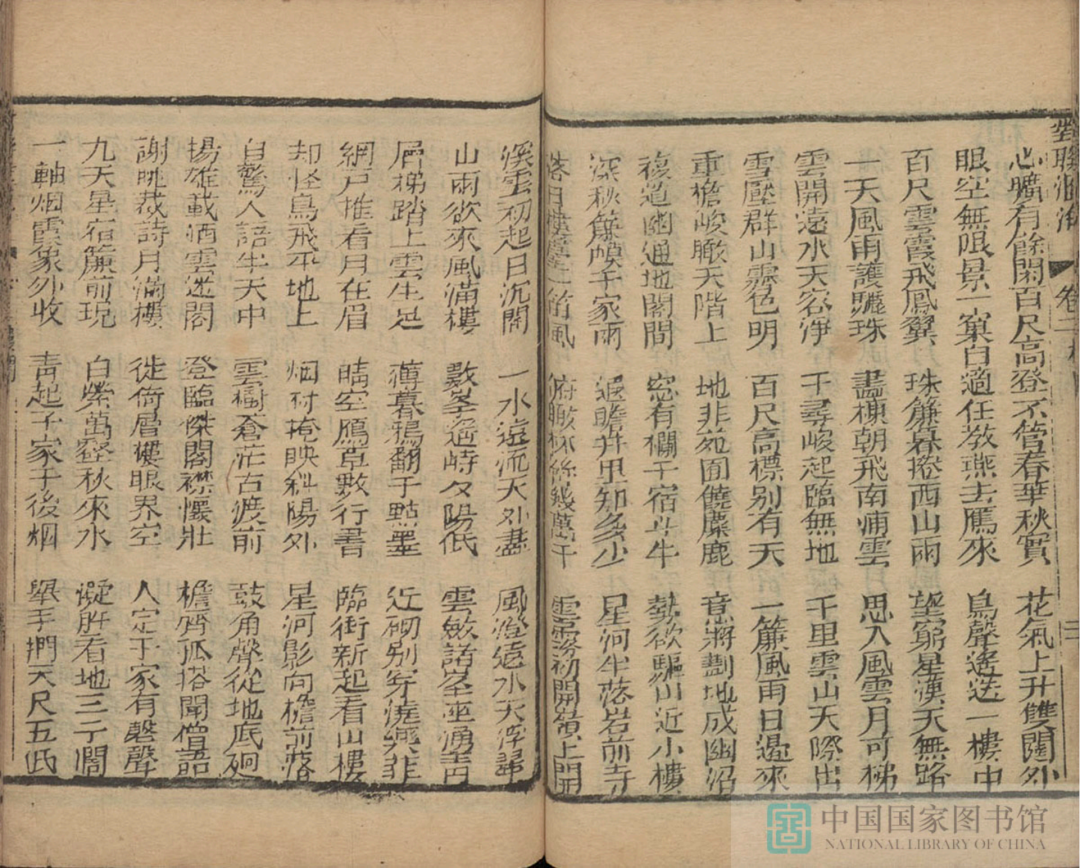 對聯滙海 卷二
心曠有餘閑百尺高登不管春華秋實 花氣上升雙闕外
眼空無限景一窠自適任教燕去鴈來 鳥聲遙送一樓中
百尺雲霞飛鳳翼 珠簾暮捲西山雨 望窮星漢天無路
一天風雨護驪珠 畫棟朝飛南浦雲 思入風雲月可梯
雲開遠水天容淨 千尋峻起臨無地 千里雲山天際出
雪壓群山霽色明 百尺高標别有天 一簾風雨日邊來
重檐峻瞰天階上 地非苑囿饒麋鹿 意將劃地成幽沼
複道幽通地閣間 窓有欄干宿斗牛 勢欲驅山近小樓
深秋簾幙千家雨 遠瞻井里知多少 星河半落岩前寺
落日樓臺一笛風 俯瞰桑麻幾萬千 雲霧初開嶺上
溪雲初起日沉閣 一水遠流天外盡 風澄遠水天浮
山雨欲來風滿樓 數峯遙峙夕陽低 雲斂諸峯座湧青
層梯踏上雲生足 薄暮鴉翻千點墨 近砌别穿澆藥井
網户推看月在眉 晴空鴈草數行書 臨街新起看山樓
却怪鳥飛平地上 烟村掩映斜陽外 星河影向檐前落
自驚人語半天中 雲樹蒼茫古渡前 鼓角聲從地底廻
揚雄載酒雲迷閣 登臨傑閣襟懷壯 檐齊孤塔聞僧語
謝眺裁詩月滿樓 徙倚層樓眼界空 人定千家有磬聲
九天星宿簾前現 白縈萬壑秋來水 凝眸看地三千濶
一軸烟霞象外收 青起千家雨後烟 舉手捫天尺五低
中国国家图书馆
NATIONAL LIBRARY OF CHINA